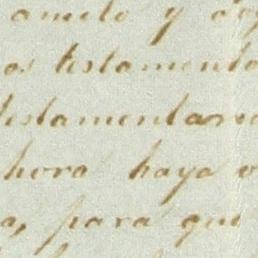 amelo y
os testamento
testamentari
hora haya
a, para que